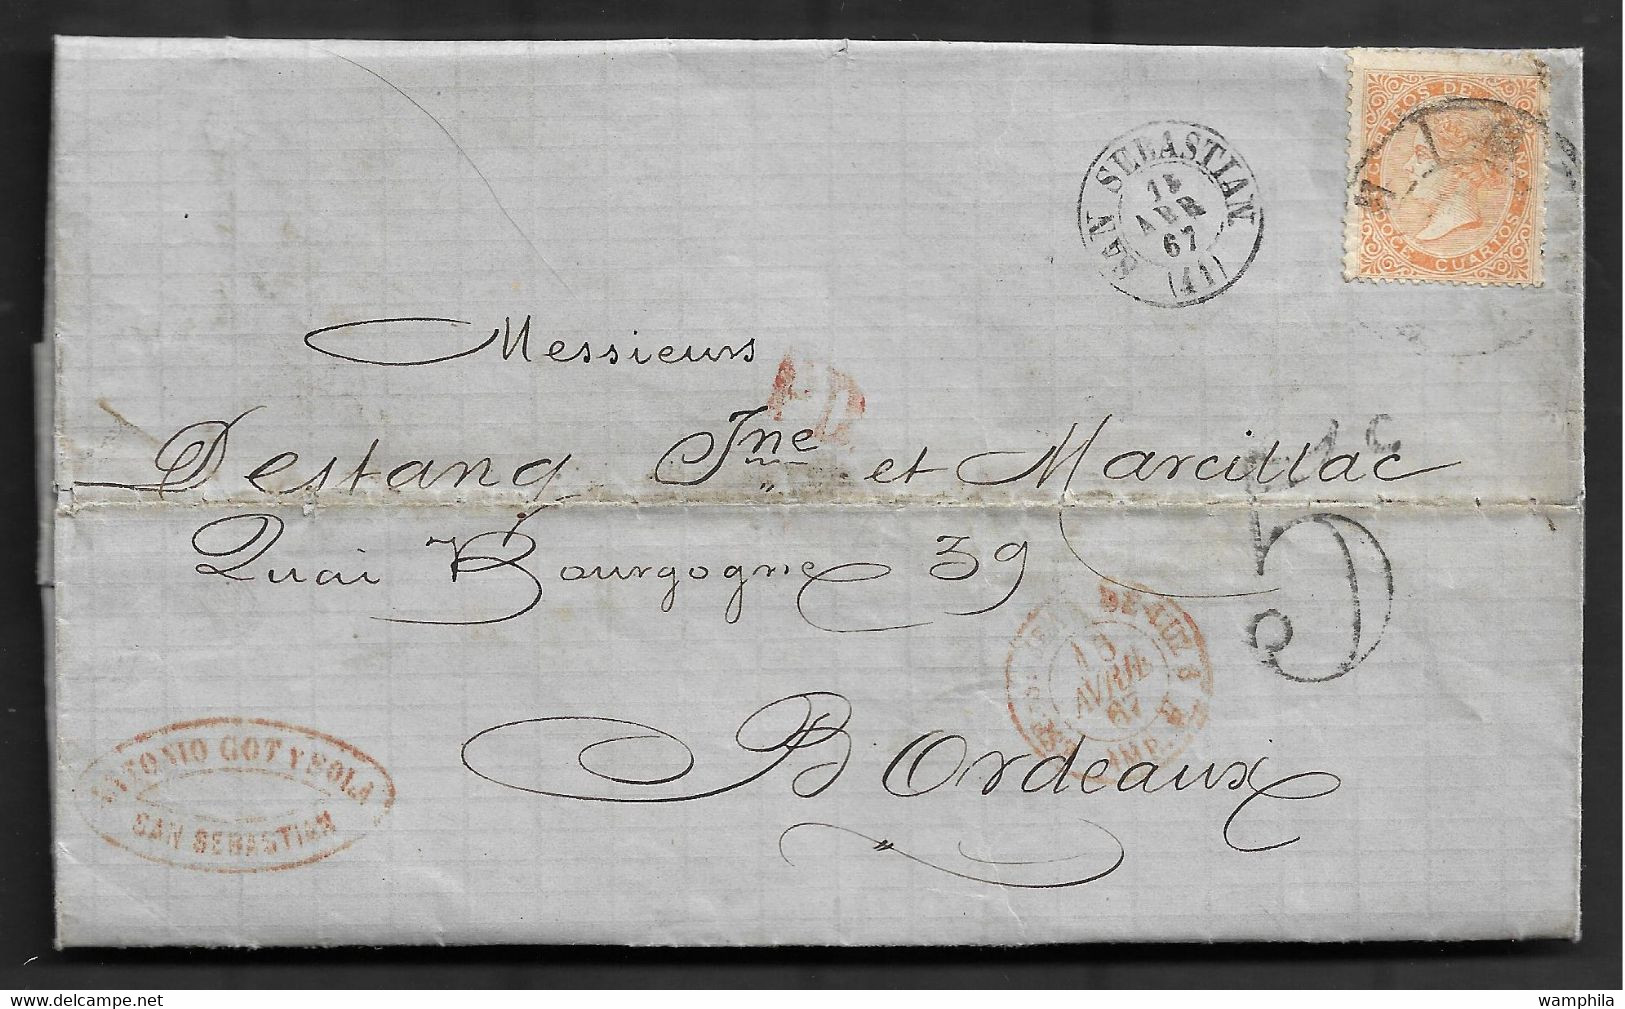 CORREOS DE ESPAÑA
DOCE CUARTOS
SAN SEBASTIAN
ABR
67
(41)
P.D.
Messieurs
Destang Jne et Marcillac
Quai Bourgogne 39
Bordeaux
5
DE-LUZ
AVRIL
67
ANTONIO GOT Y SOLA
SAN SEBASTIAN
wamphila